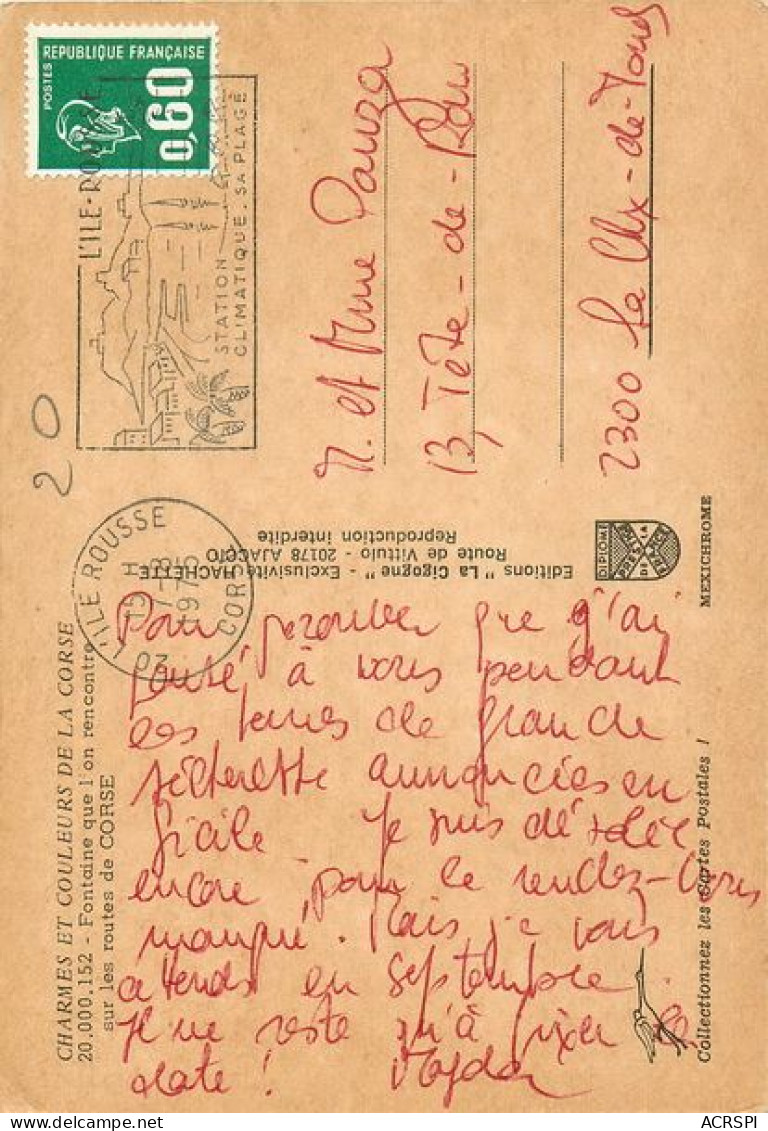 REPUBLIQUE FRANÇAISE
POSTES
0,60
L'ILE-ROUSSE
STATION
CLIMATIQUE. SA PLAGE
20
L'ILE ROUSSE
19 H
7-8
1975
20 CORSE
M. et Mme Pauza
13, Tête-de-Ran
2300 La Chx-de-Fonds
Editions " La Cigogne " - Exclusivité HACHETTE
Route de Vittulo - 20178 AJACCIO
Reproduction interdite
DIPLOME
PRESTIGE
DE LA
FRANCE
MEXICHROME
CHARMES ET COULEURS DE LA CORSE
20.000.152 - Fontaine que l'on rencontre
sur les routes de CORSE
Pour prouver que j'ai
pensé à vous pendant
les temps de grande
sécheresse annoncées en
Sicile. Je suis désolée
encore pour le rendez-vous
manqué. Mais je vous
attends en septembre.
Il ne reste qu'à fixer la
date ! Magda
Collectionnez les Cartes Postales !
ACRSPI